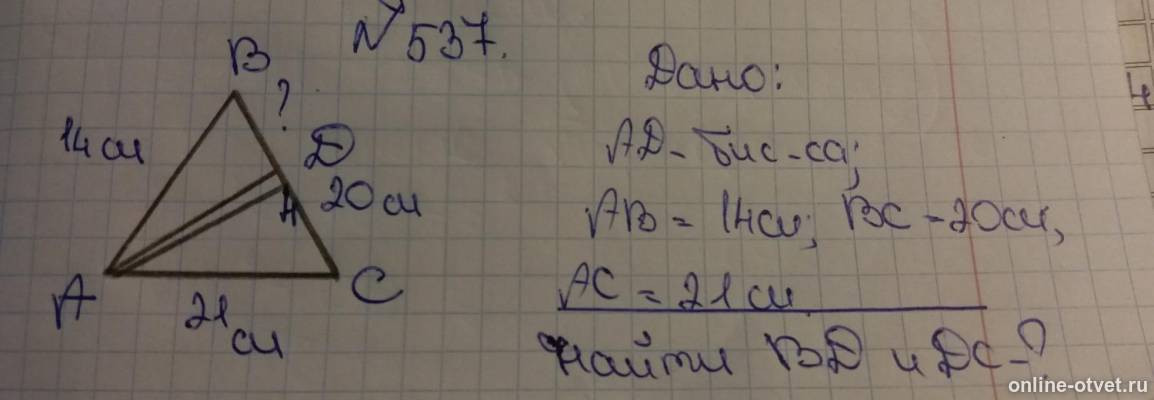 N 537.
B
?
14 см
D
20 см
H
A
21 см
C
Дано:
AD - бис-са;
AB = 14 см; BC - 20 см,
AC = 21 см
найти BD и DC-?
4
online-otvet.ru